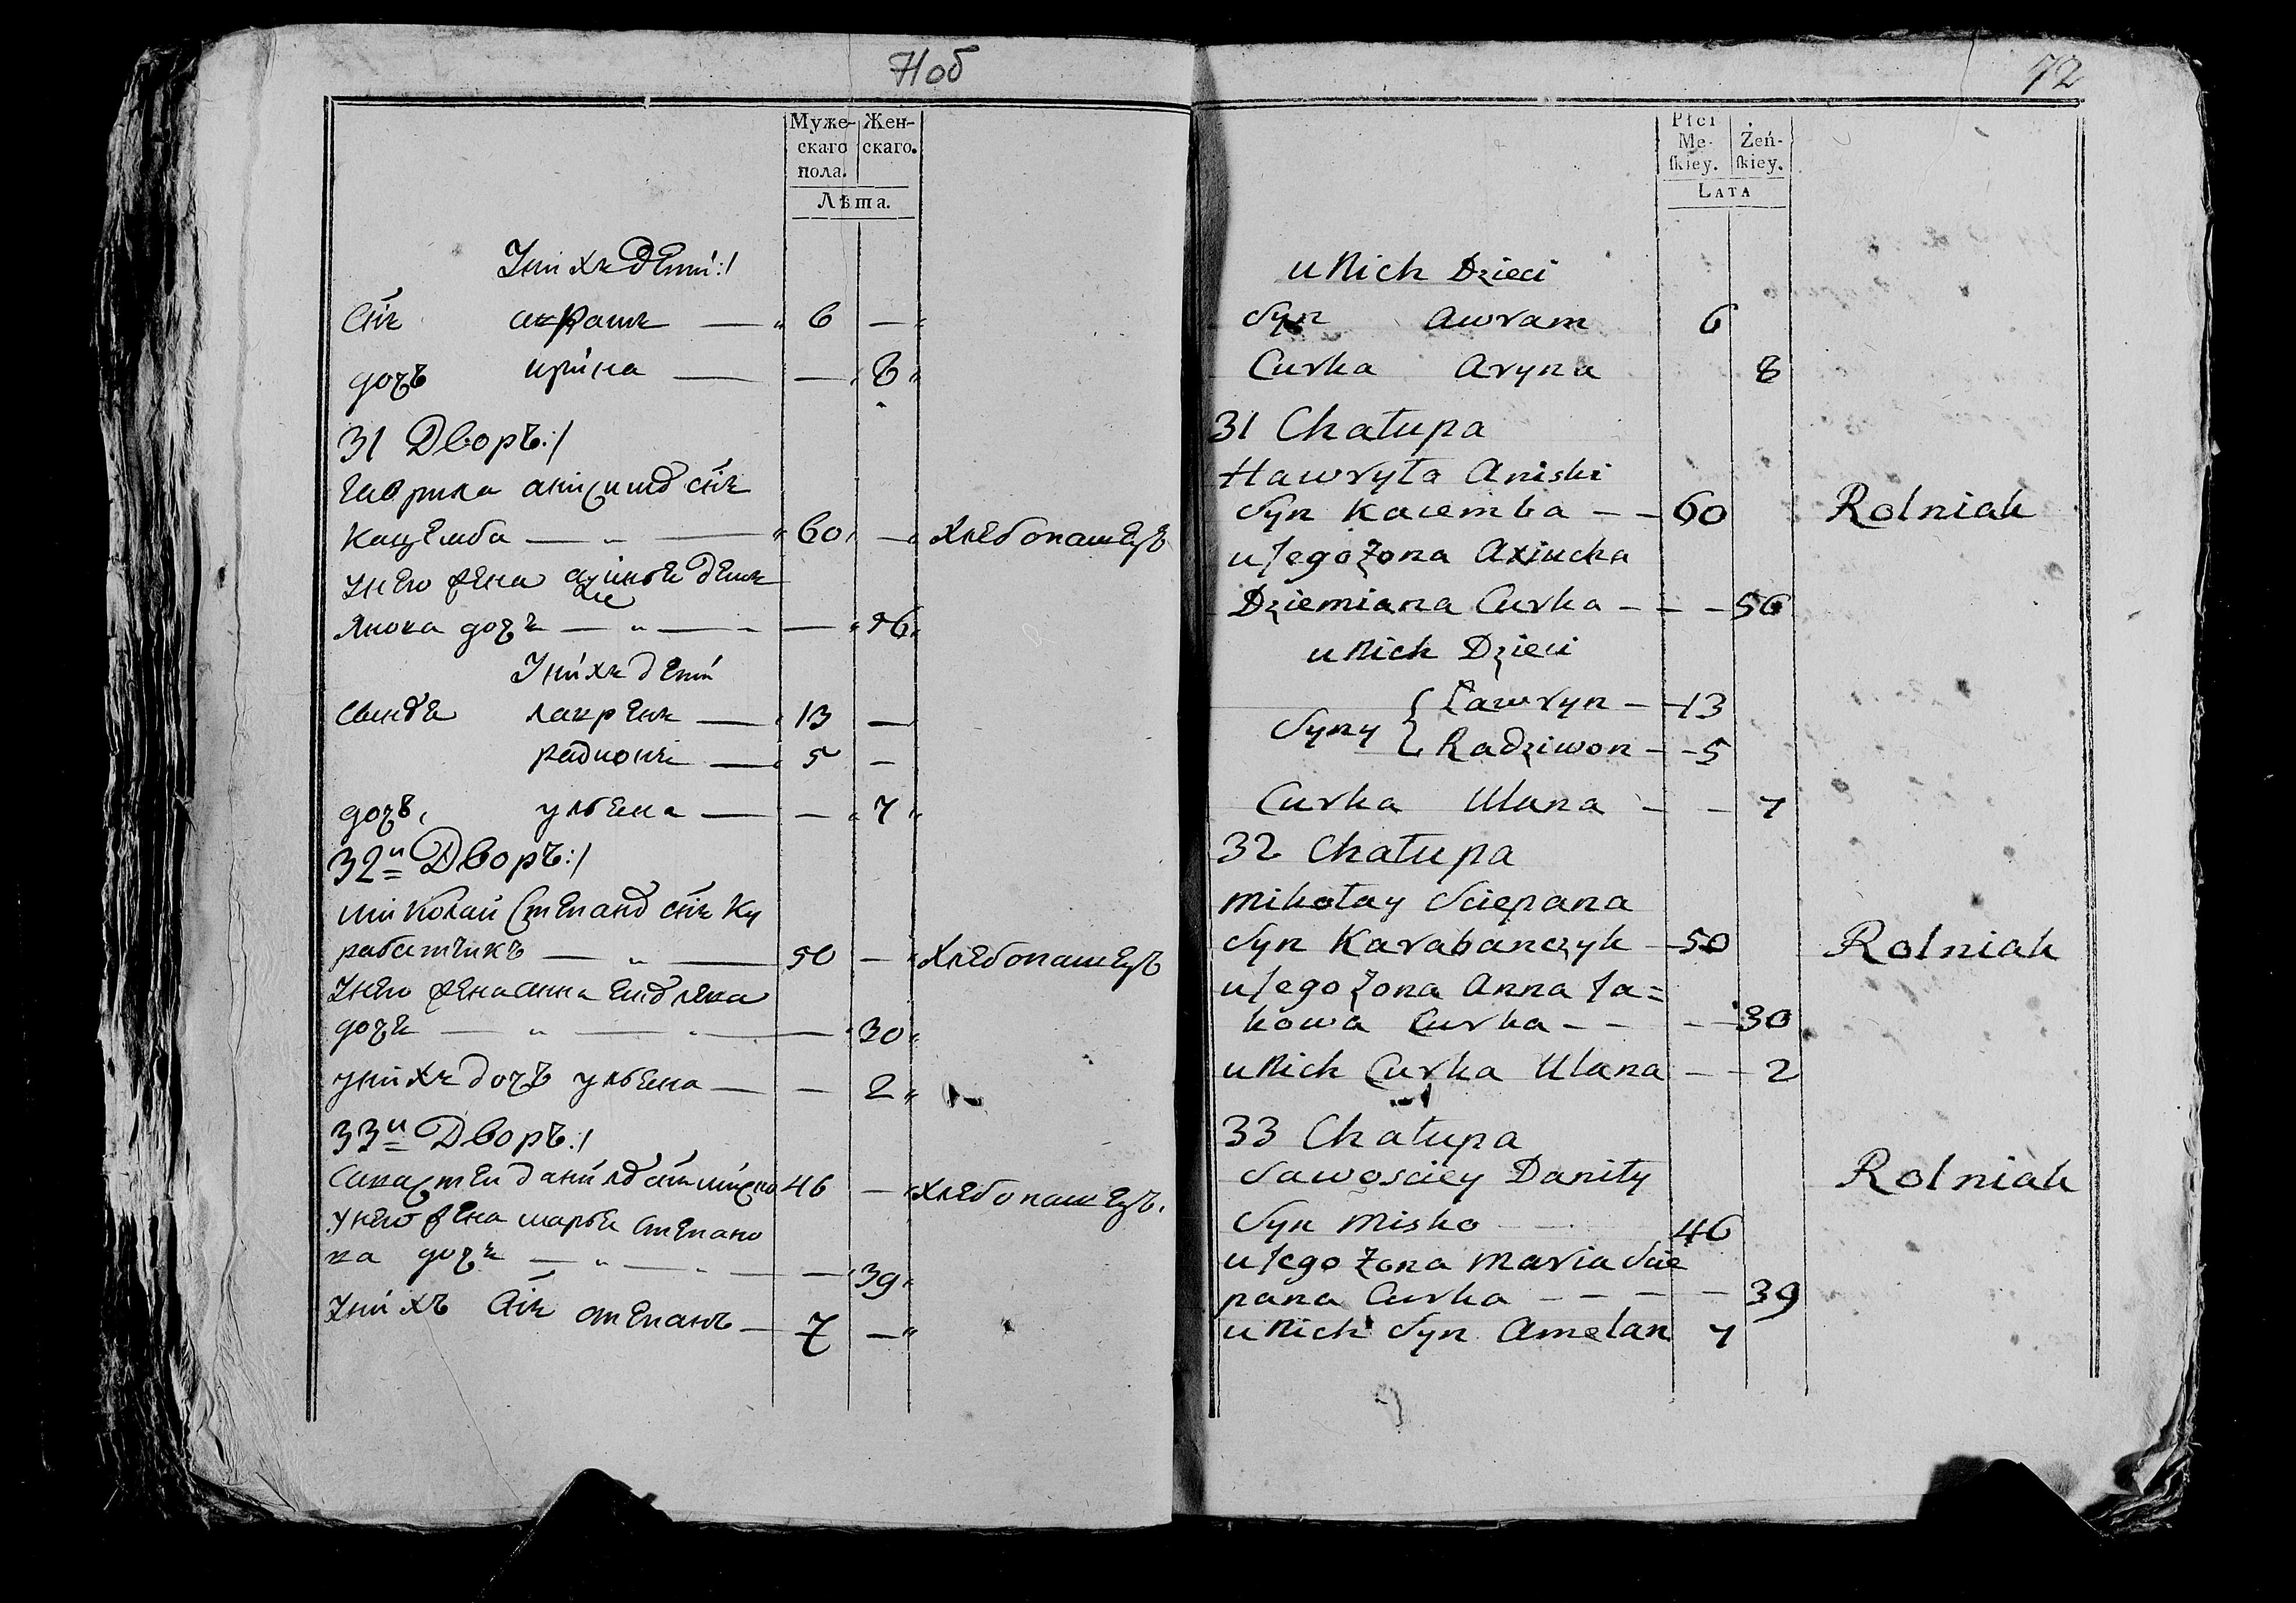 71об
Муже-
скаго
пола.
Жен-
скаго.
Лѣта.
У нихъ дети:/
Снъ аврамъ — 6 —
дочь ирина — — 8
31 Дворъ:/
Гаврила снъ
Кацемба — 60 — хлебопашецъ
у него жена
дочь — — 56
У нихъ дети
лавренъ — 13 —
радионъ — 5 —
дочь, ульена — — 7
32й Дворъ:/
миколай степанов снъ Ку
рабатчикъ — 50 — хлебопашецъ
У него жена анна
дочь — — 30
у нихъ дочь ульена — — 2
33й Дворъ:/
Савастеи данилов снъ миско 46 — хлебопашецъ.
У него жена марья степано
ва дочь — — 39
У нихъ снъ степанъ — 7 —
72
Płci
Mę-
skiey.
Żeń-
skiey.
Lata
u Nich Dzieci
Syn Awram 6
Curka Aryna 8
31 Chałupa
Hawryła Aniski
Syn Kacemba – – 60 Rolniak
u Jego Żona Axiucha
Dziemiana Curka – – – 56
u Nich Dzieci
Syny { Ławryn – 13
Radziwon – – 5
Curka Ulana – – 7
32 Chałupa
Mikołay Sciepana
Syn Karabanczyk – 50 Rolniak
u Jego Żona Anna Ja=
kowa Curka – – – – 30
u Nich Curka Ulana – – 2
33 Chałupa
Sawosciey Daniły Rolniak
Syn Misko 46
u Jego Żona Maria Scie
pana Curka – – – – 39
u Nich Syn Amelan 7